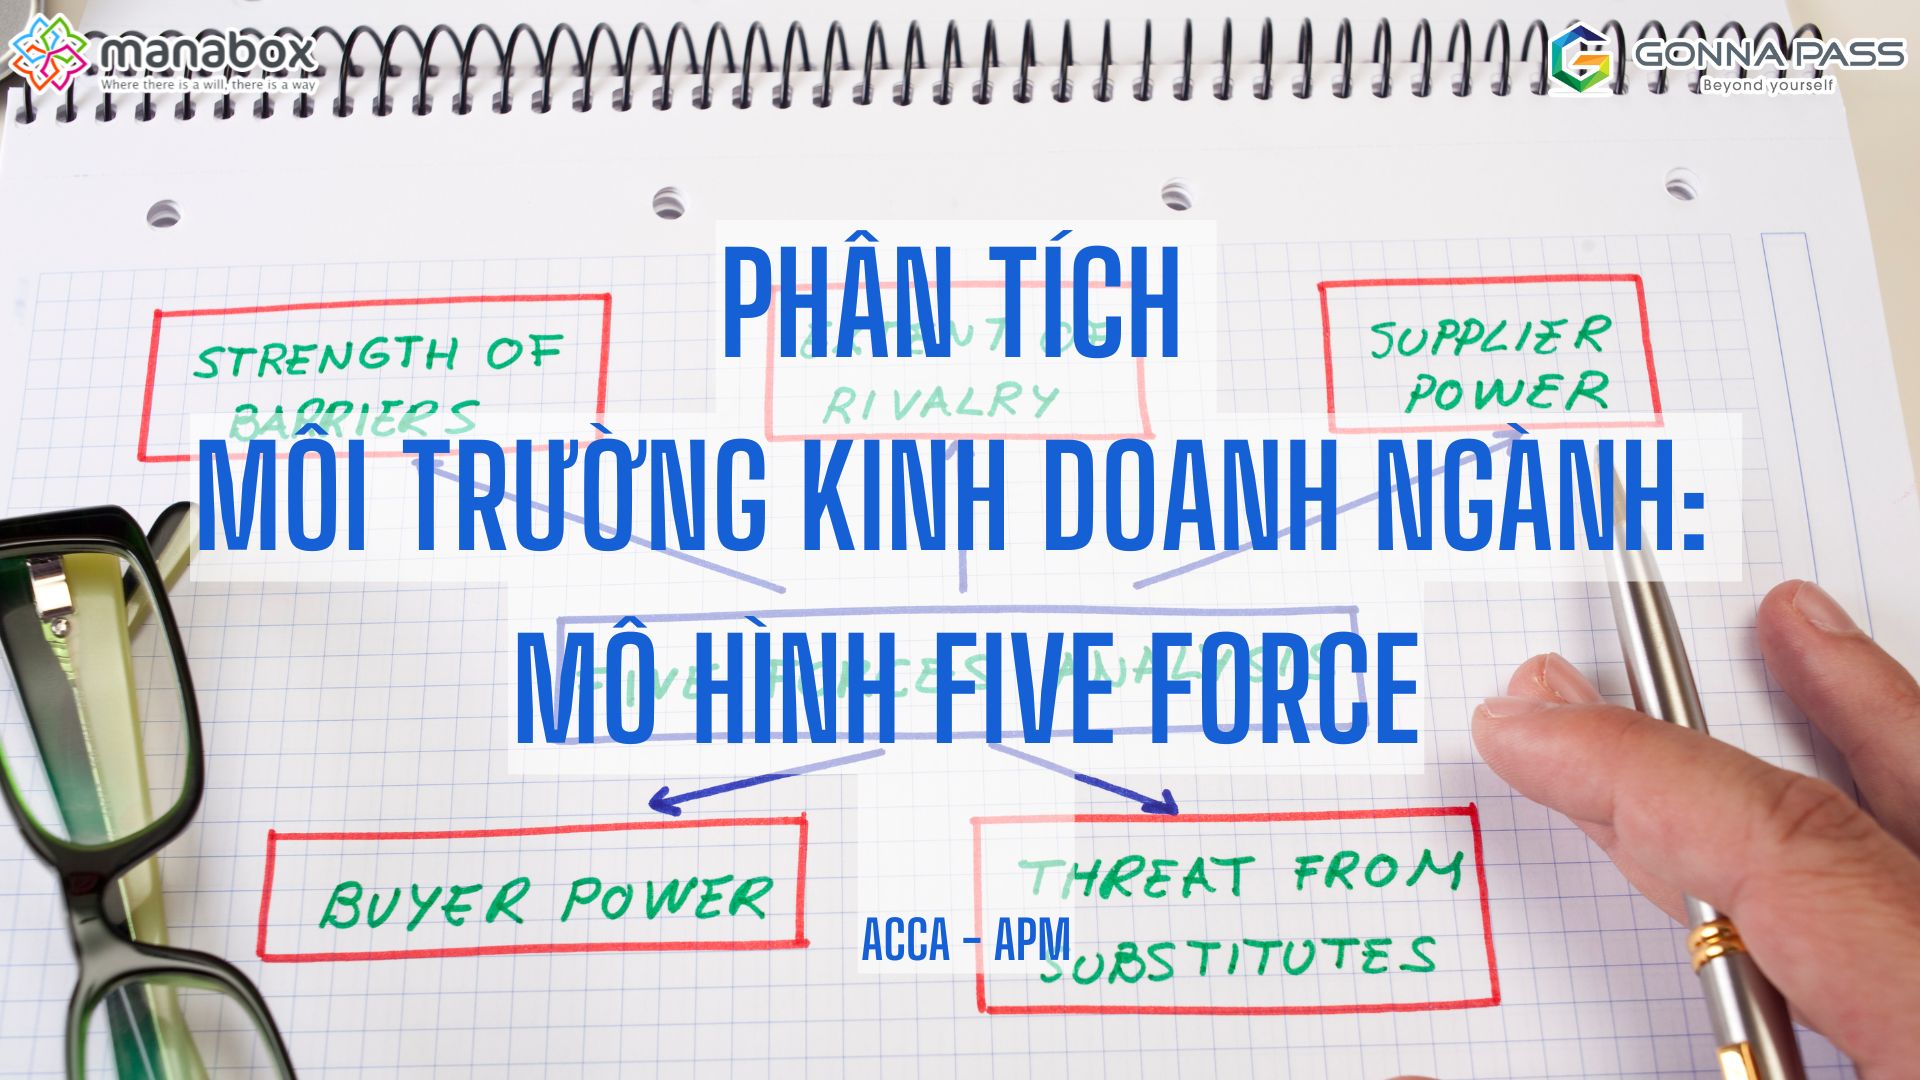 manabox
Where there is a will, there is a way
GONNA PASS
Beyond yourself
PHÂN TÍCH
STRENGTH OF
BARRIERS
EXTENT OF
RIVALRY
SUPPLIER
POWER
MÔI TRƯỜNG KINH DOANH NGÀNH:
FIVE FORCES ANALYSIS
MÔ HÌNH FIVE FORCE
BUYER POWER
THREAT FROM
SUBSTITUTES
ACCA - APM